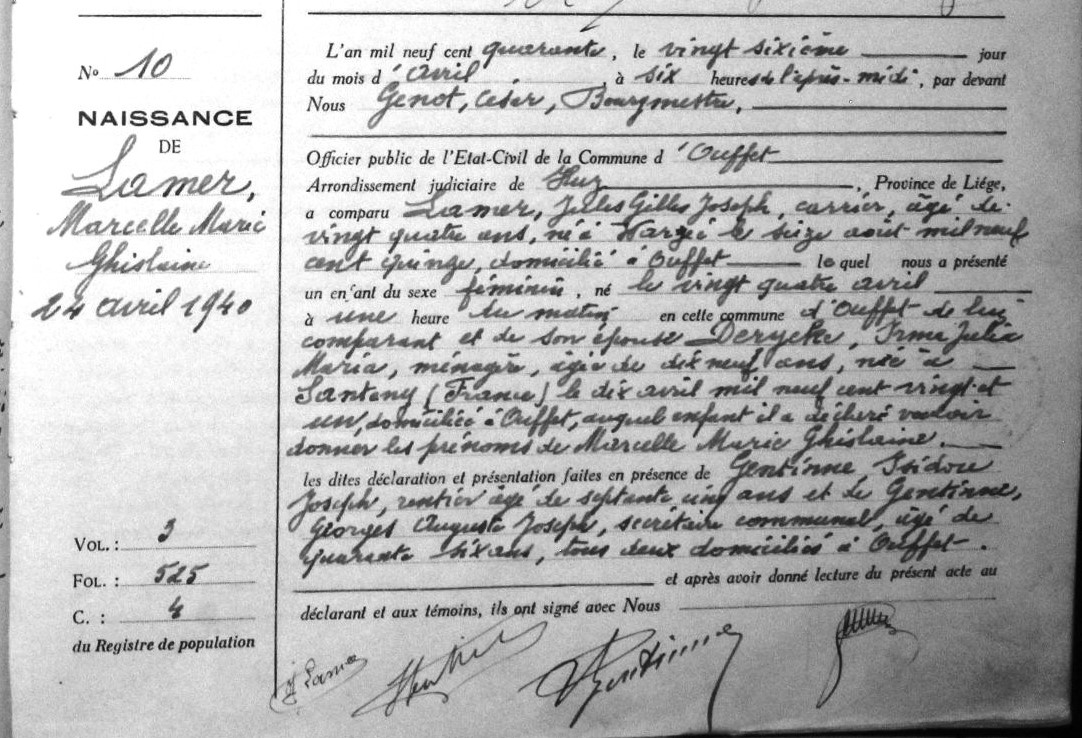 No 10
NAISSANCE
DE
Lamer,
Marcelle Marie
Ghislaine
24 avril 1940
VOL. : 3
FOL. : 525
C. : 4
du Registre de population
L'an mil neuf cent quarante, le vingt sixième jour
du mois d'avril, à six heures de l'après-midi, par devant
Nous Genot, César, Bourgmestre,
Officier public de l'Etat-Civil de la Commune d'Ouffet
Arrondissement judiciaire de Huy, Province de Liége,
a comparu Lamer, Jules Gilles Joseph, carrier, âgé de
vingt quatre ans, né à Warzée le seize août mil neuf
cent quinze, domicilié à Ouffet lequel nous a présenté
un enfant du sexe féminin, né le vingt quatre avril
à une heure du matin en cette commune d'Ouffet de lui
comparant et de son épouse Derycke, Irma Julia
Maria, ménagère, âgée de dix neuf ans, née à
Santeny (France) le dix avril mil neuf cent vingt et
un, domiciliée à Ouffet, auquel enfant il a déclaré vouloir
donner les prénoms de Marcelle Marie Ghislaine.
les dites déclaration et présentation faites en présence de Gentinne Isidore
Joseph, rentier âgé de septante cinq ans et de Gentinne,
Georges Auguste Joseph, secrétaire communal, âgé de
quarante six ans, tous deux domiciliés à Ouffet.
et après avoir donné lecture du présent acte au
déclarant et aux témoins, ils ont signé avec Nous
J Lamer Gentinne